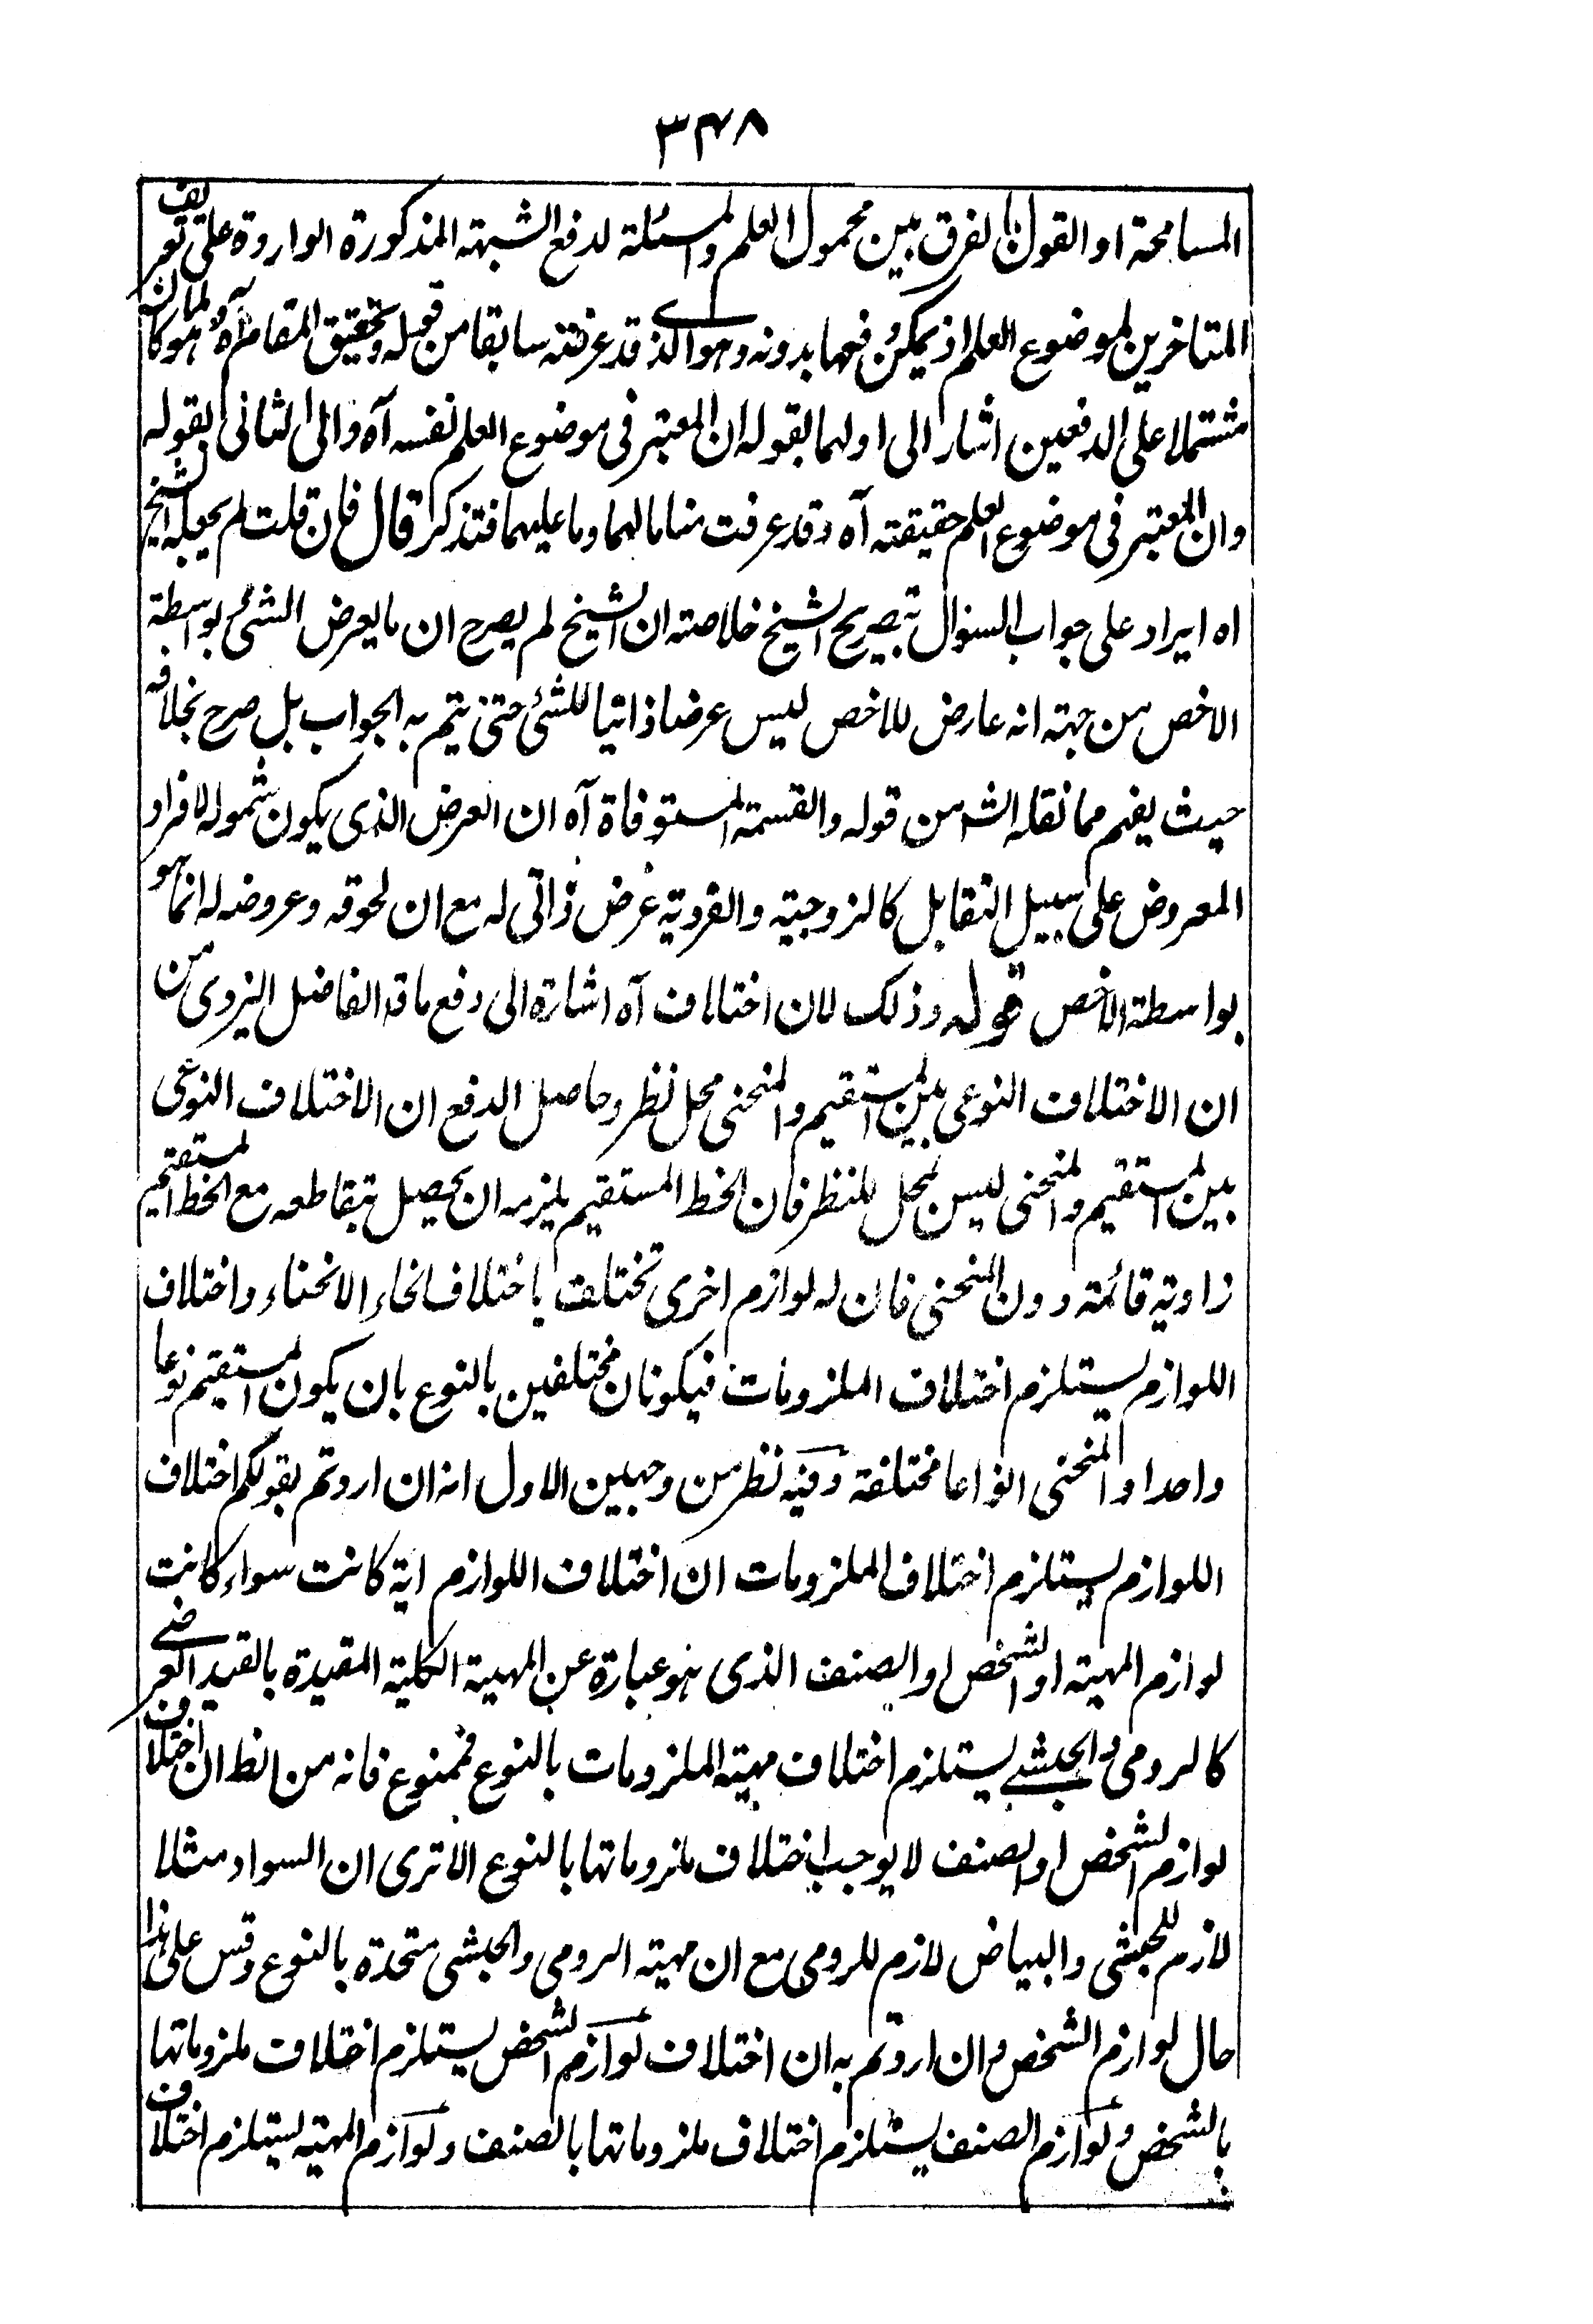 ۳۴۸
المسامحة او القول بالفرق بين محمول العلم والمسئلة لدفع الشبهة المذكورة الواردة على تعريف
المتاخرين لموضوع العلم اذ يمكن فهما بدونه وهو الذى قد عرفته سابقا من قبله وتحقيق المقام آه ولما كان هو
مشتملا على الدفعين اشار الى اولهما بقوله ان المعتبر فى موضوع العلم نفسه آه والى الثانى بقوله
وان المعتبر فى موضوع العلم حقيقته آه وقد عرفت منا مالهما وما عليهما فتذكر قال فان قلت لم يجعله الشيخ
اه ايراد على جواب السوال بتصريح الشيخ خلاصته ان الشيخ لم يصرح ان ما يعرض الشئ بواسطة
الاخص من جهته انه عارض للاخص ليس عرضا ذاتيا للشئ حتى يتم به الجواب بل صرح بخلافه
حيث يفهم مما نقله الش من قوله والقسمة المستوفاة آه ان العرض الذى يكون شموله لافراد
المعروض على سبيل التقابل كالزوجية والفردية عرض ذاتى له مع ان لحوقه وعروضه له انما هو
بواسطة الاخص قوله وذلك لان اختلاف آه اشارة الى دفع ماقه الفاضل اليزدى من
ان الاختلاف النوعى بين المستقيم والمنحنى محل نظر وحاصل الدفع ان الاختلاف النوعى
بين المستقيم والمنحنى ليس بمحل للنظر فان الخط المستقيم يلزمه ان يحصل بتقاطعه مع الخط المستقيم
زاوية قائمة دون المنحنى فان له لوازم اخرى تختلف باختلاف انحاء الانحناء واختلاف
اللوازم يستلزم اختلاف الملزومات فيكونان مختلفين بالنوع بان يكون المستقيم نوعا
واحدا والمنحنى انواعا مختلفة وفيه نظر من وجهين الاول انه ان اردتم بقولكم اختلاف
اللوازم يستلزم اختلاف الملزومات ان اختلاف اللوازم اية كانت سواء كانت
لوازم المهية او الشخص او الصنف الذى هو عبارة عن المهية الكلية المقيدة بالقيد العرضى
كالرومى والحبشى يستلزم اختلاف مهية الملزومات بالنوع فممنوع فانه من الظ ان اختلاف
لوازم الشخص او الصنف لا يوجب اختلاف ملزوماتها بالنوع الا ترى ان السواد مثلا
لازم للحبشى والبياض لازم للرومى مع ان مهية الرومى والحبشى متحدة بالنوع وقس على هذا
حال لوازم الشخص وان اردتم به ان اختلاف لوازم الشخص يستلزم اختلاف ملزوماتها
بالشخص ولوازم الصنف يستلزم اختلاف ملزوماتها بالصنف ولوازم المهية يستلزم اختلاف